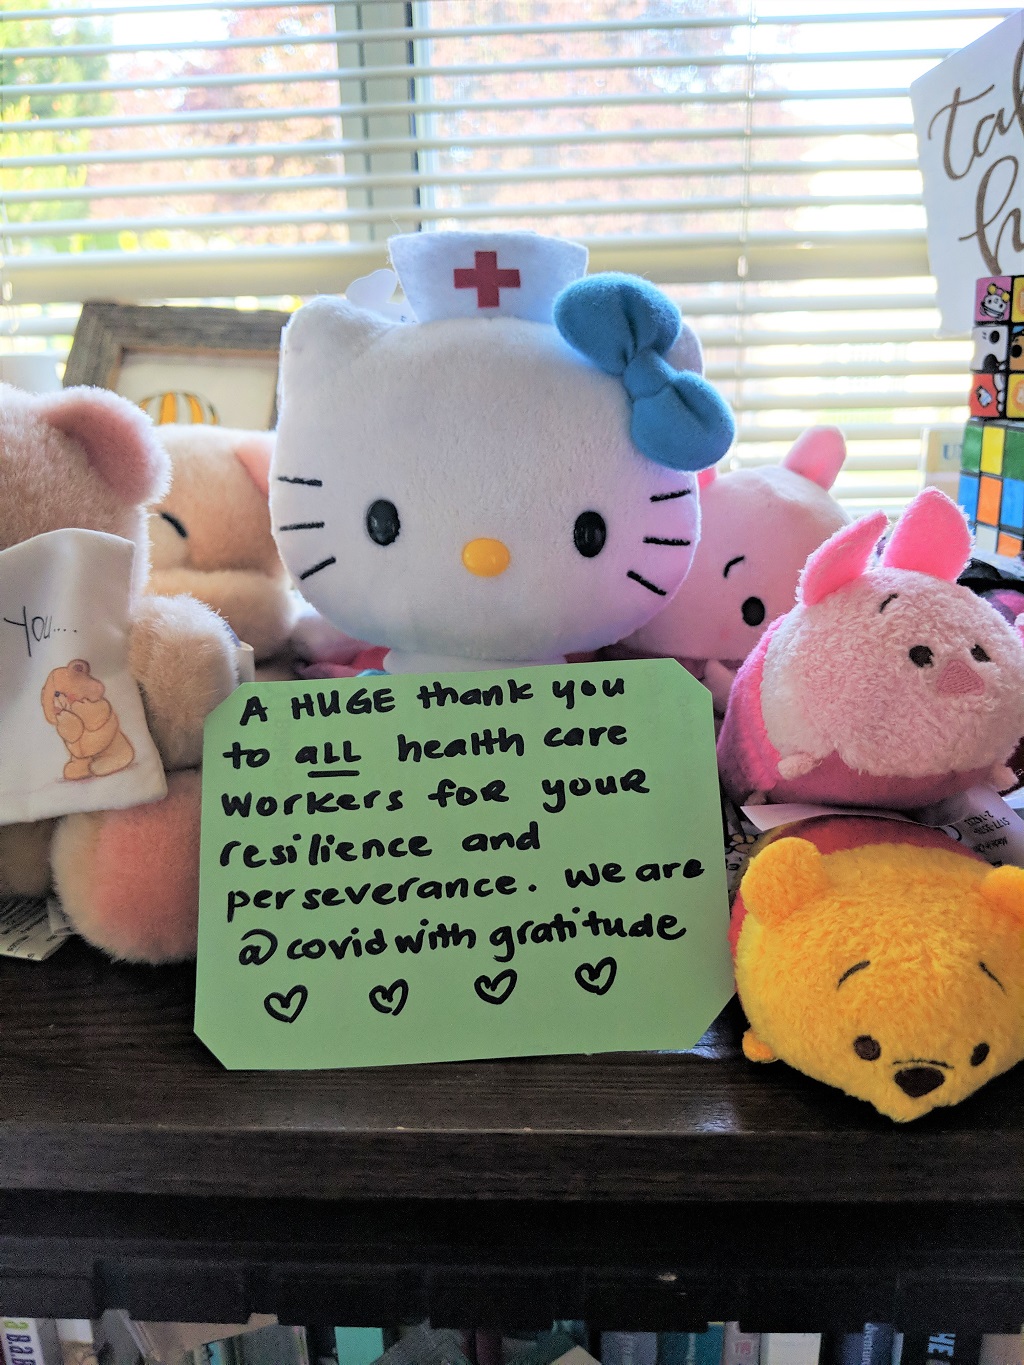 You....
A HUGE thank you
to aLL health care
Workers for your
resilience and
perseverance. We are
@covidwithgratitude
THE